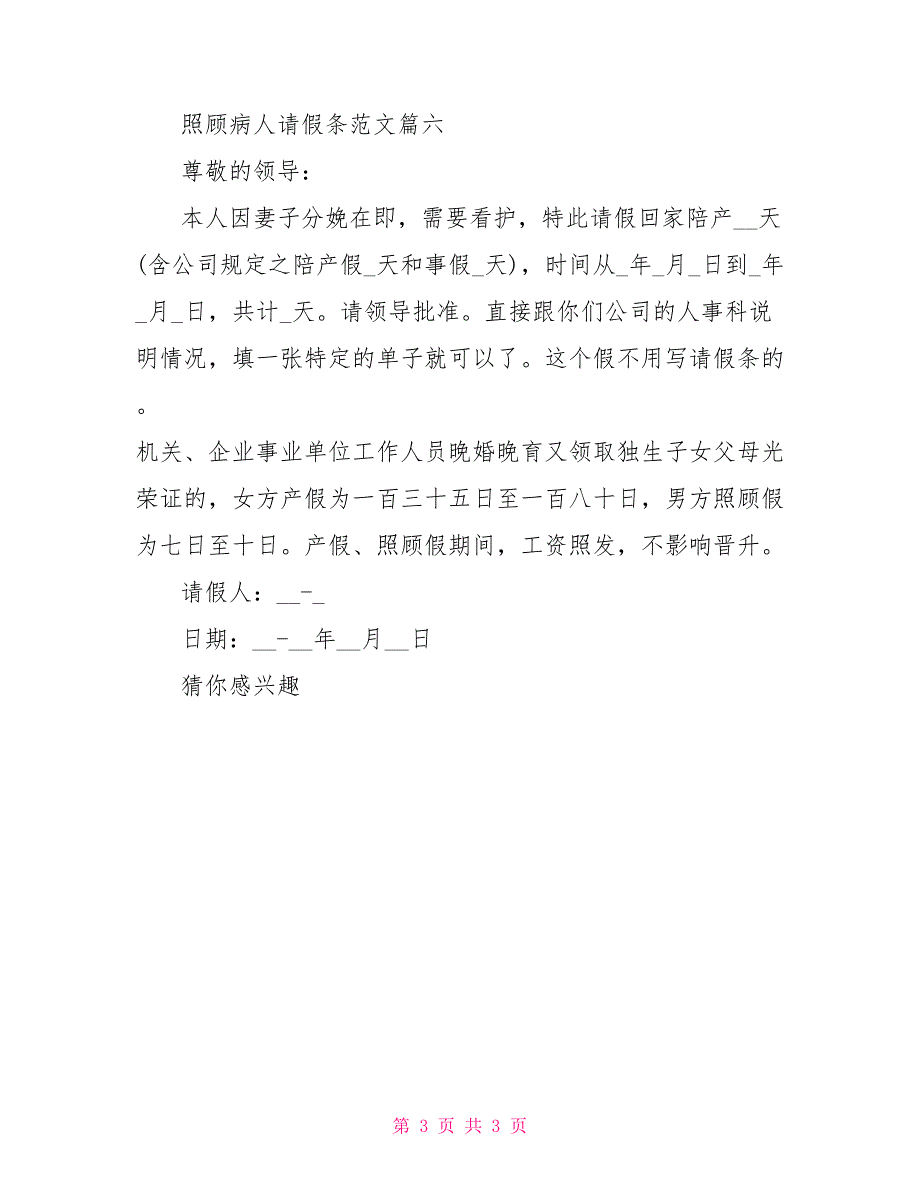 照顾病人请假条范文篇六
尊敬的领导：
本人因妻子分娩在即，需要看护，特此请假回家陪产__天
(含公司规定之陪产假_天和事假_天)，时间从_年_月_日到_年
_月_日，共计_天。请领导批准。直接跟你们公司的人事科说
明情况，填一张特定的单子就可以了。这个假不用写请假条的
。
机关、企业事业单位工作人员晚婚晚育又领取独生子女父母光
荣证的，女方产假为一百三十五日至一百八十日，男方照顾假
为七日至十日。产假、照顾假期间，工资照发，不影响晋升。
请假人：__-_
日期：__-__年__月__日
猜你感兴趣
第 3 页 共 3 页